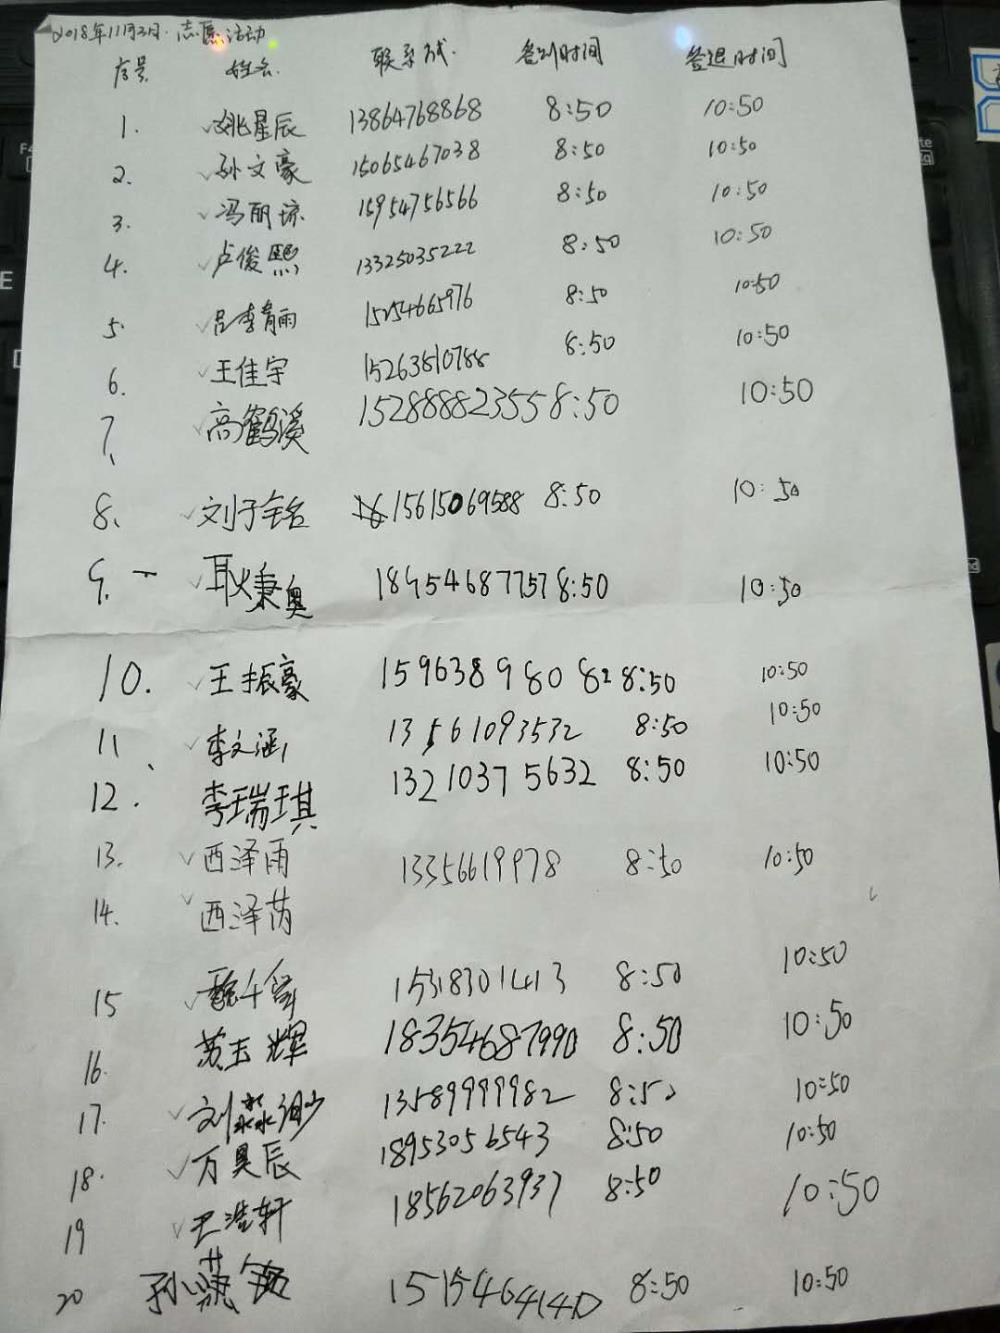 2018年11月3日 志愿活动
序号 姓名 联系方式 签到时间 签退时间
1. ✓姚星辰 13864768868 8:50 10:50
2. ✓孙文豪 15065467038 8:50 10:50
3. ✓冯丽琼 15954756566 8:50 10:50
4. ✓卢俊熙 13325035222 8:50 10:50
5. ✓吕李青丽 15254665976 8:50 10:50
6. ✓王佳宇 15263810788 8:50 10:50
7、 ✓高鹤溪 15288882355 8:50 10:50
8、 ✓刘子铭 15615069588 8:50 10:50
9. ✓耿秉奥 18954687757 8:50 10:50
10. ✓王振豪 15963898082 8:50 10:50
11、 ✓李文涵 13561093532 8:50 10:50
12. 李瑞琪 13210375632 8:50 10:50
13. ✓西泽雨 13356619978 8:50 10:50
14. ✓西泽芮
15 ✓魏千 15318301413 8:50 10:50
16. 黄玉辉 18354687990 8:50 10:50
17. ✓刘淼 13589999982 8:50 10:50
18. ✓万昊辰 18953056543 8:50 10:50
19 ✓尹浩轩 18562063937 8:50 10:50
20 孙 1515464140 8:50 10:50